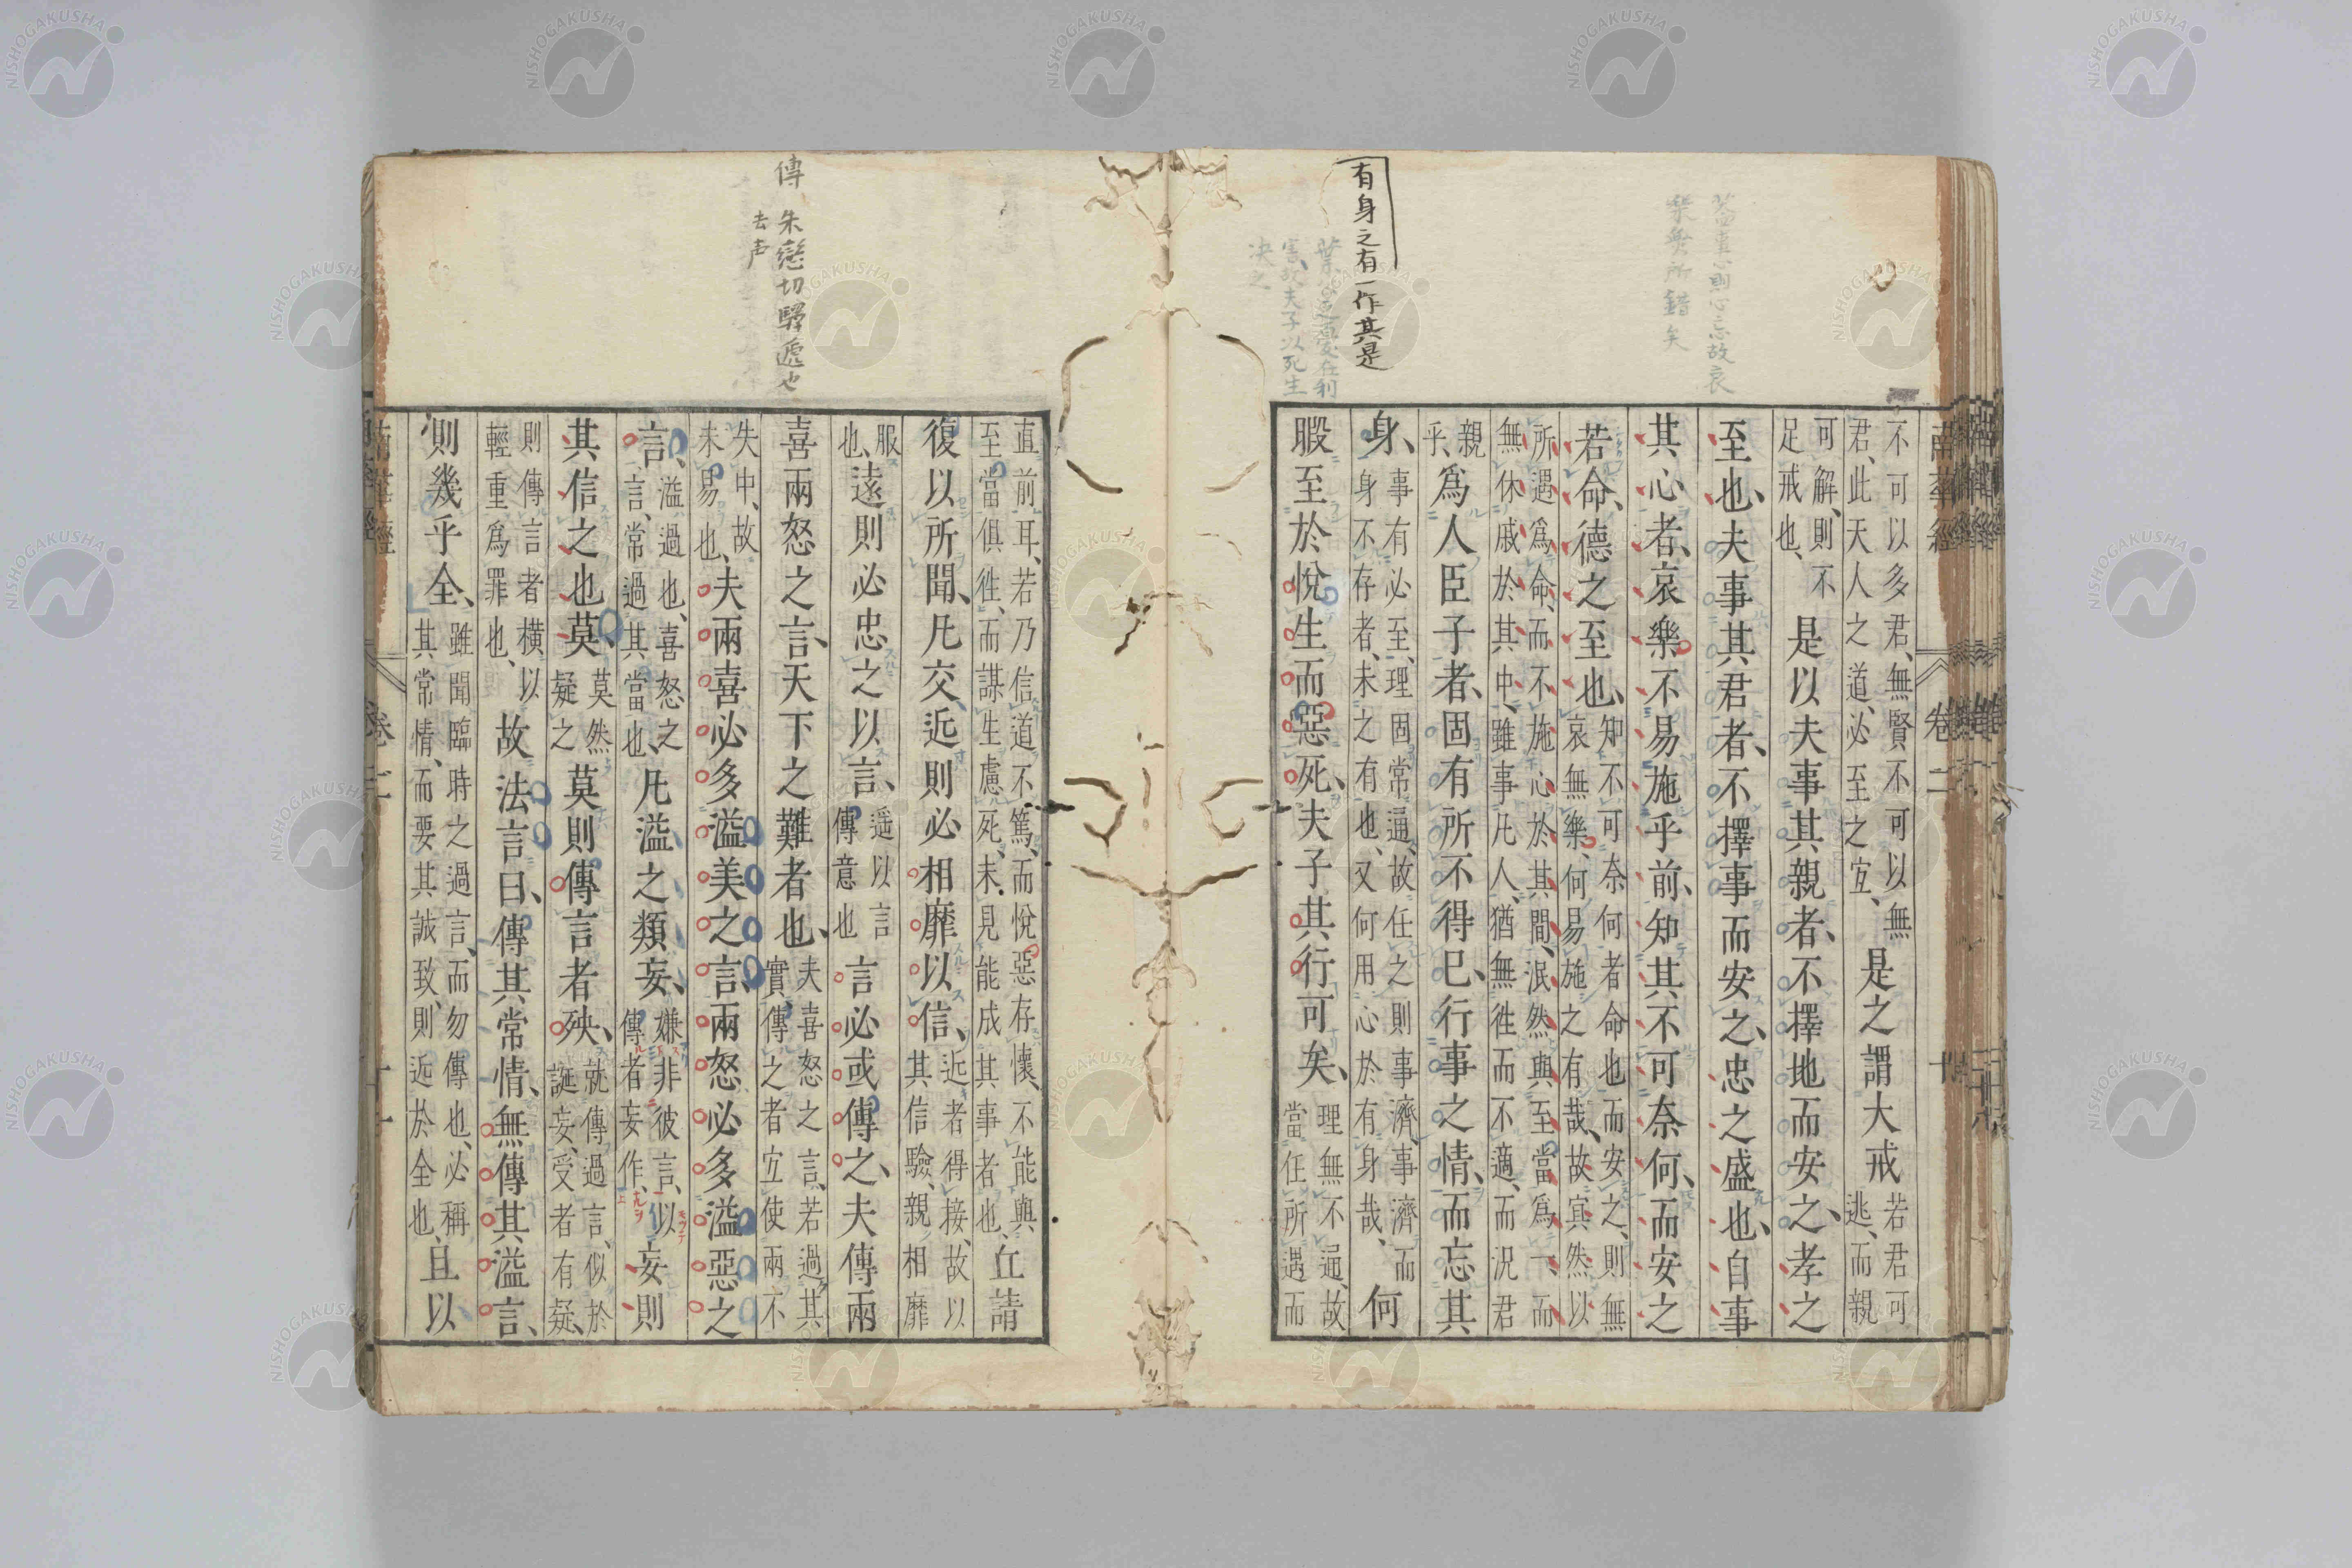 有身之有一作其是
葉公之憂在利
害故夫子以死生
決之
南華經 卷二
不可以多君、無賢不可以無
君、此天人之道、必至之宜、
是之謂大戒
若君可
逃、而親
可解、則不
足戒也、
是以夫事其親者、不擇地而安之、孝之
至也、夫事其君者、不擇事而安之、忠之盛也、自事
其心者、哀樂不易施乎前、知其不可奈何、而安之
若命、德之至也、
知不可奈何者命也而安之、則無
哀無樂、何易施之有哉、故冥然以
所遇爲命、而不施心於其間、泯然與至當爲一、而
無休戚於其中、雖事凡人、猶無往而不適、而況君
親
乎、
爲人臣子者、固有所不得已、行事之情、而忘其
身、
事有必至、理固常通、故任之則事濟、事濟而
身不存者、未之有也、又何用心於有身哉、
何
暇至於悅生而惡死、夫子其行可矣、
理無不通、故
當任所遇而
傳 朱戀切驛遞也
去声
直前耳、若乃信道不篤、而悅惡存懷、不能與
至當俱往、而謀生慮死、未見能成其事者也、
丘請
復以所聞、凡交近則必相靡以信、
近者得接、故以
其信驗、親相靡
服
也、
遠則必忠之以言、
遥以言
傳意也
言必或傳之、夫傳兩
喜兩怒之言、天下之難者也、
夫喜怒之言、若過其
實、傳之者宜使兩不
失中、故
未易也、
夫兩喜必多溢美之言、兩怒必多溢惡之
言、
溢過也、喜怒之
言、常過其當也、
凡溢之類妄、
嫌非彼言、以
傳者妄作、
妄則
其信之也莫、
莫然
疑之
莫則傳言者殃、
就傳過言、似於
誕妄、受者有疑、
則傳言者橫以
輕重爲罪也、
故法言曰、傳其常情、無傳其溢言、
則幾乎全、
雖聞臨時之過言、而勿傳也、必稱
其常情、而要其誠致、則近於全也、
且以
南華經 卷二